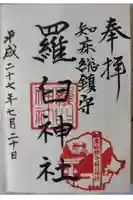 奉拝
知床鎮守
羅臼神社
平成二十七年七月二十日